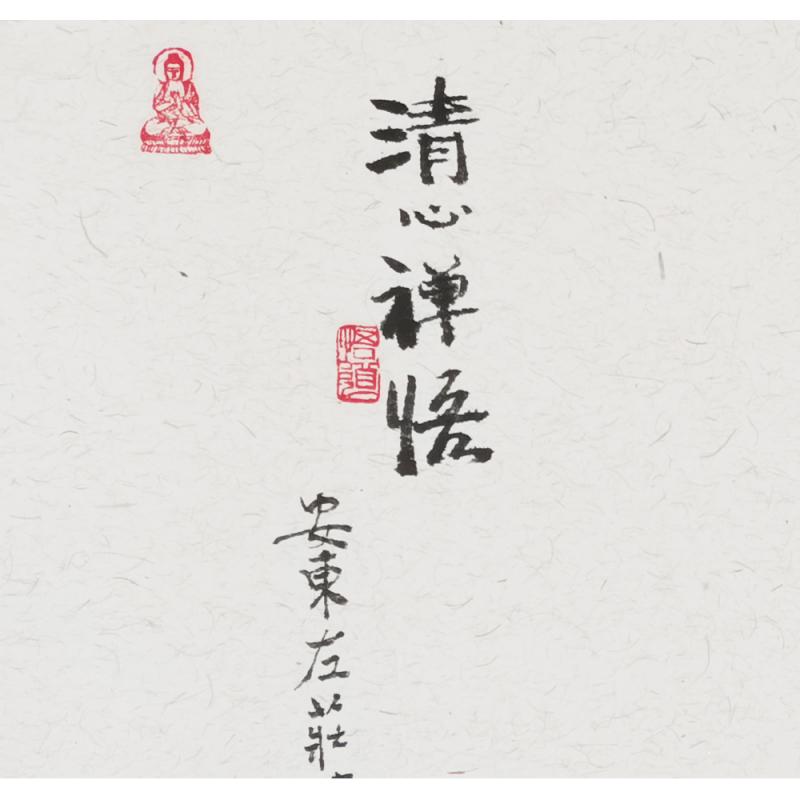 清心禅悟
悟頭
安東左莊